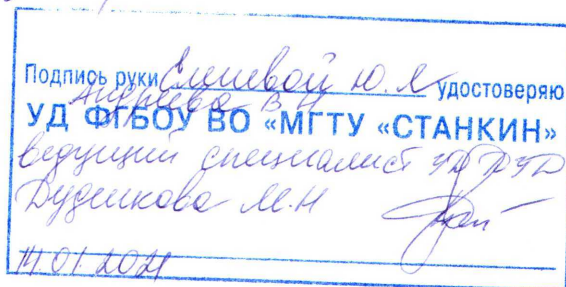 Подпись руки Елисевой Ю. Я. удостоверяю
Андреева В Н
УД ФГБОУ ВО «МГТУ «СТАНКИН»
ведущий специалист
Дудникова М.Н
14.01.2021